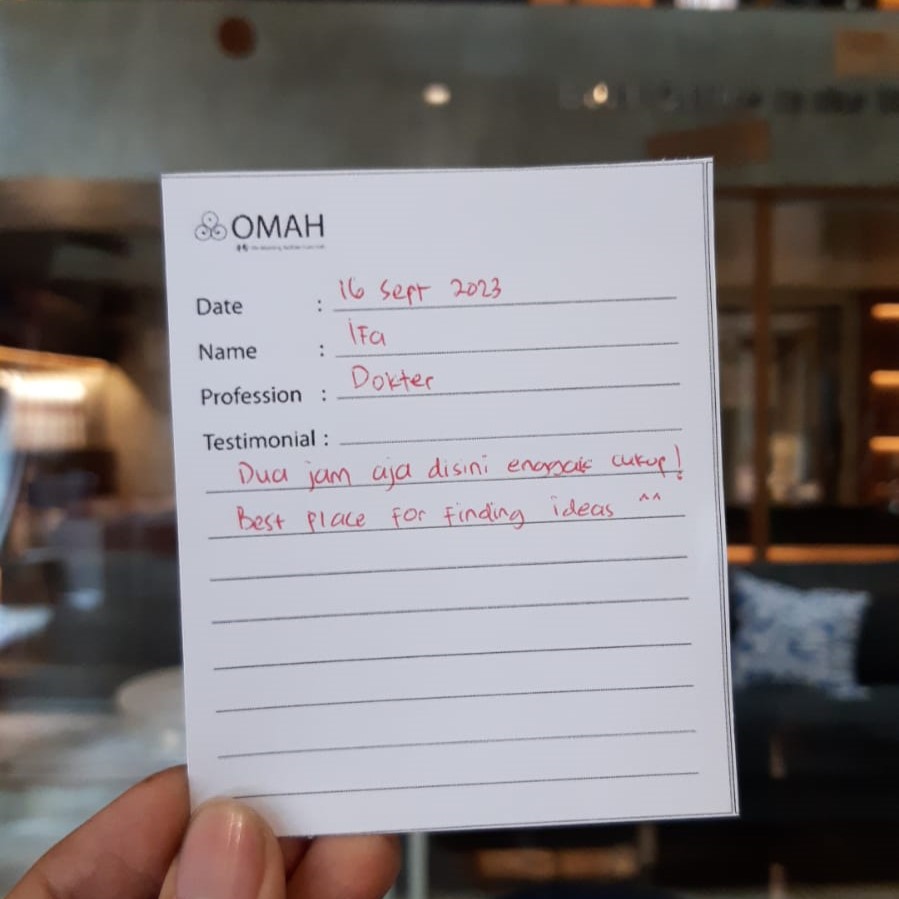 OMAH
Date : 16 Sept 2023
Name : Ifa
Profession : Dokter
Testimonial :
Dua jam aja disini enggak cukup!
Best place for finding ideas ^^